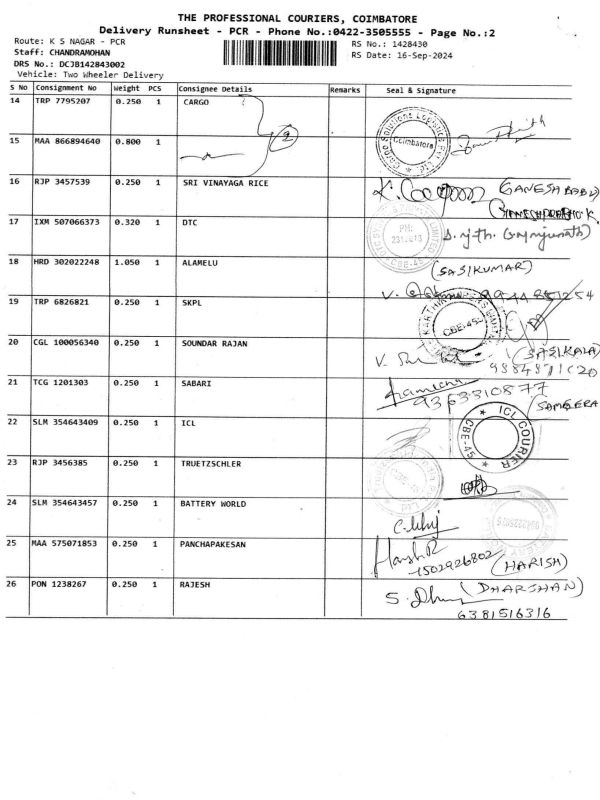 THE PROFESSIONAL COURIERS, COIMBATORE
Delivery Runsheet - PCR - Phone No.:0422-3505555 - Page No.:2
Route: K S NAGAR - PCR
RS No.: 1428430
Staff: CHANDRAMOHAN
RS Date: 16-Sep-2024
DRS No.: DCJB142843002
Vehicle: Two Wheeler Delivery
S No Consignment No Weight PCS Consignee Details Remarks Seal & Signature
14 TRP 7795207 0.250 1 CARGO
2
Coimbatore
15 MAA 866894640 0.800 1
16 RJP 3457539 0.250 1 SRI VINAYAGA RICE
GANESH BABU
17 IXM 507066373 0.320 1 DTC
18 HRD 302022248 1.050 1 ALAMELU
(SASIKUMAR)
9944851254
19 TRP 6826821 0.250 1 SKPL
CBE-45
20 CGL 100056340 0.250 1 SOUNDAR RAJAN
(SASIKALA)
21 TCG 1201303 0.250 1 SABARI
9363310877
(SAMEERA
22 SLM 354643409 0.250 1 ICL
ICL COURIER
CBE-45
23 RJP 3456385 0.250 1 TRUETZSCHLER
24 SLM 354643457 0.250 1 BATTERY WORLD
25 MAA 575071853 0.250 1 PANCHAPAKESAN
Harish R
7502926802 (HARISH)
26 PON 1238267 0.250 1 RAJESH
(DHARSHAN)
6381516316